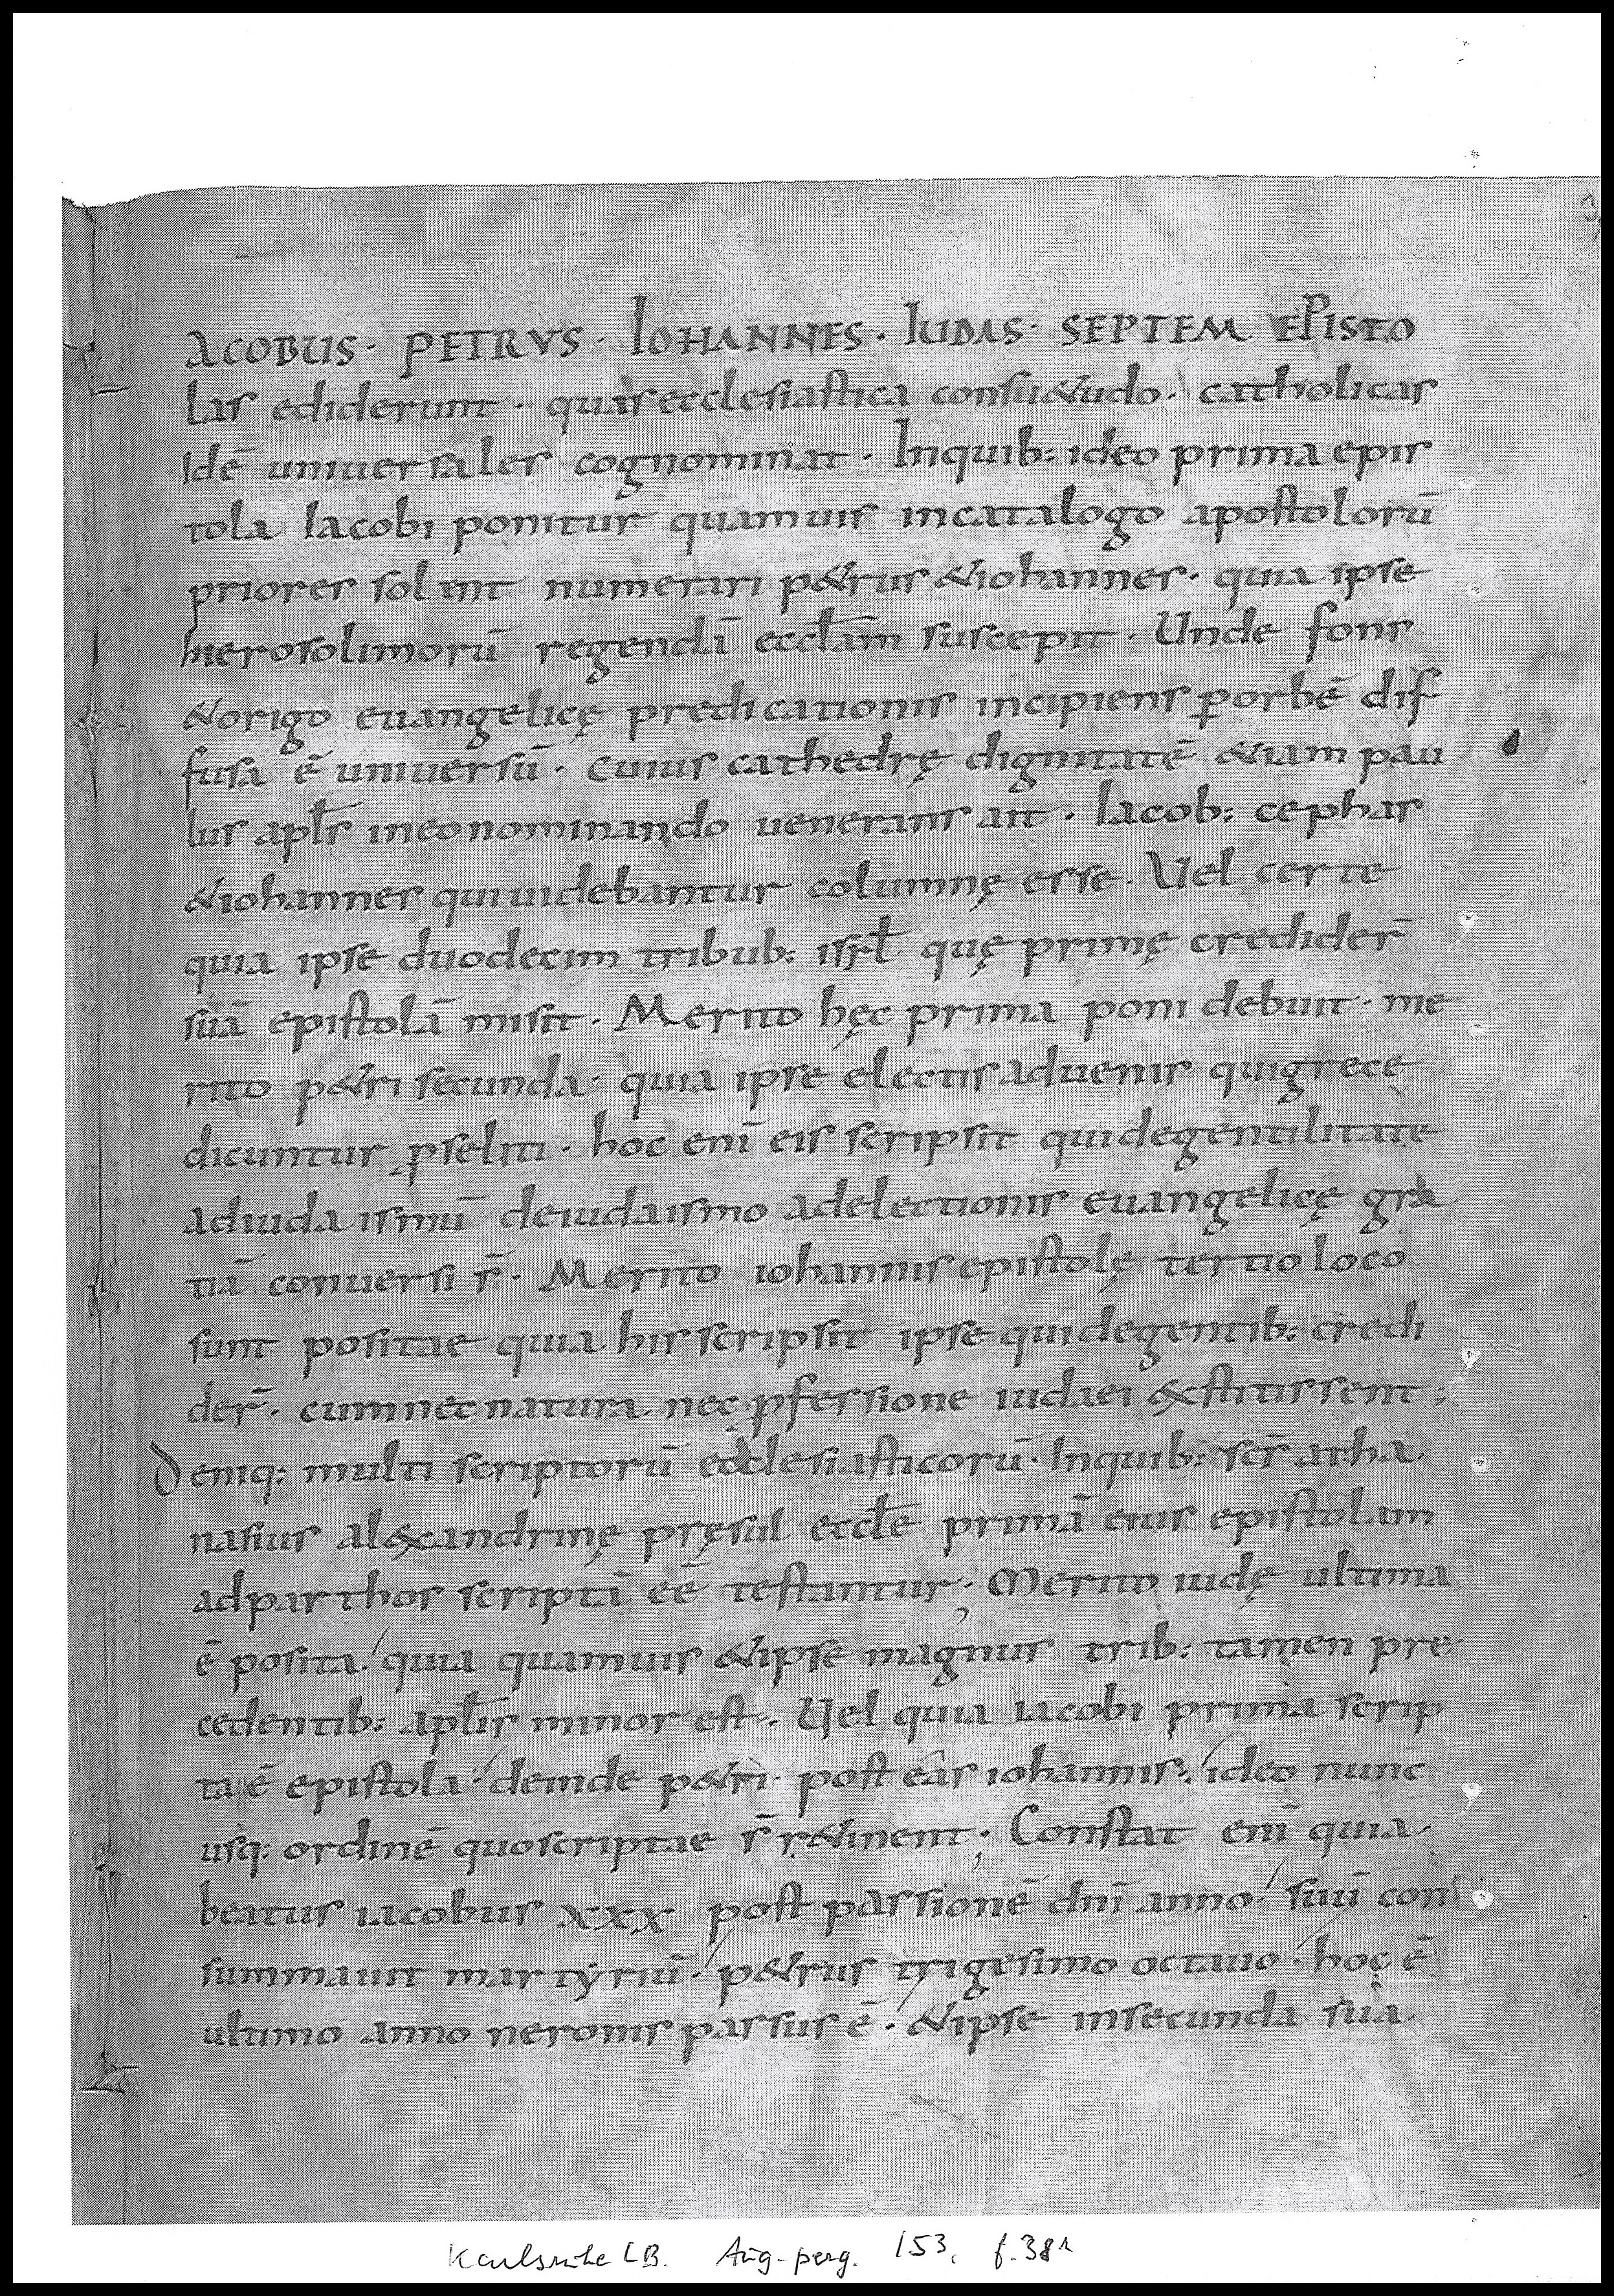 ACOBUS · PETRVS · IOHANNES · IUDAS · SEPTEM EPISTO
las ediderunt · quas ecclesiastica consu&udo · catholicas
Idē uniuersales cognominat · Inquib: ideo prima epis
tola Iacobi ponitur quamuis incatalogo apostolorū
priores solent numerari p&rus &iohannes · quia ipse
hierosolimorū regendā eccl̄am suscepit · Unde fons
&origo euangelicę predicationis incipiens p̱orbē dif
fusa ē uniuersū · Cuius cathedrę dignitatē &iam pau
lus apl̄s ineonominando uenerans ait · Iacob: cephas
&iohannes quiuidebantur columnę esse · Uel certe
quia ipse duodecim tribub: isrl̄ quę primę credider̄
suā epistolā misit · Merito hęc prima poni debuit · me
rito p&ri secunda · quia ipse electisaduenis quigrece
dicuntur ꝓseliti · hoc enī eis scripsit quidegentilitate
adiudaismū deiudaismo adelectionis euangelicę gra
tiā conuersi s̄ · Merito iohannis epistolę tertio loco
sunt positae quia his scripsit ipse quidegentib: credi
der̄ · cumnec natura nec ꝓfessione iudaei &xstitissent ;
Deniq: multi scriptorū ecclesiasticorū · Inquib: sc̄s atha
nasius al&xandrinę pręsul eccl̄e primā eius epistolam
adparthos scriptā eē testantur ; Merito iudę ultima
ē posita · quia quamuis &ipse magnus trib: tamen pre
cedentib: apl̄is minor est · Uel quia iacobi prima scrip
ta ē epistola · deinde p&ri · post eas iohannis · ideo nunc
usq: ordinē quoscriptae s̄ r&inent ; Constat enī quia
beatus iacobus xxx post passionē dn̄i anno · suū con
summauit martyriū · p&rus trigesimo octauo · hoc ē
ultimo anno neronis passus ē · &ipse insecunda sua
Karlsruhe LB. Aug-perg. 153, f. 38r